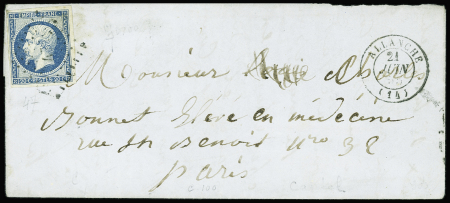 EMPIRE FRANC
ALLANCHE
21
JUIN
(14)
Monsieur
Bonnet Elève en médecine
rue St Benoit Nro 32
paris